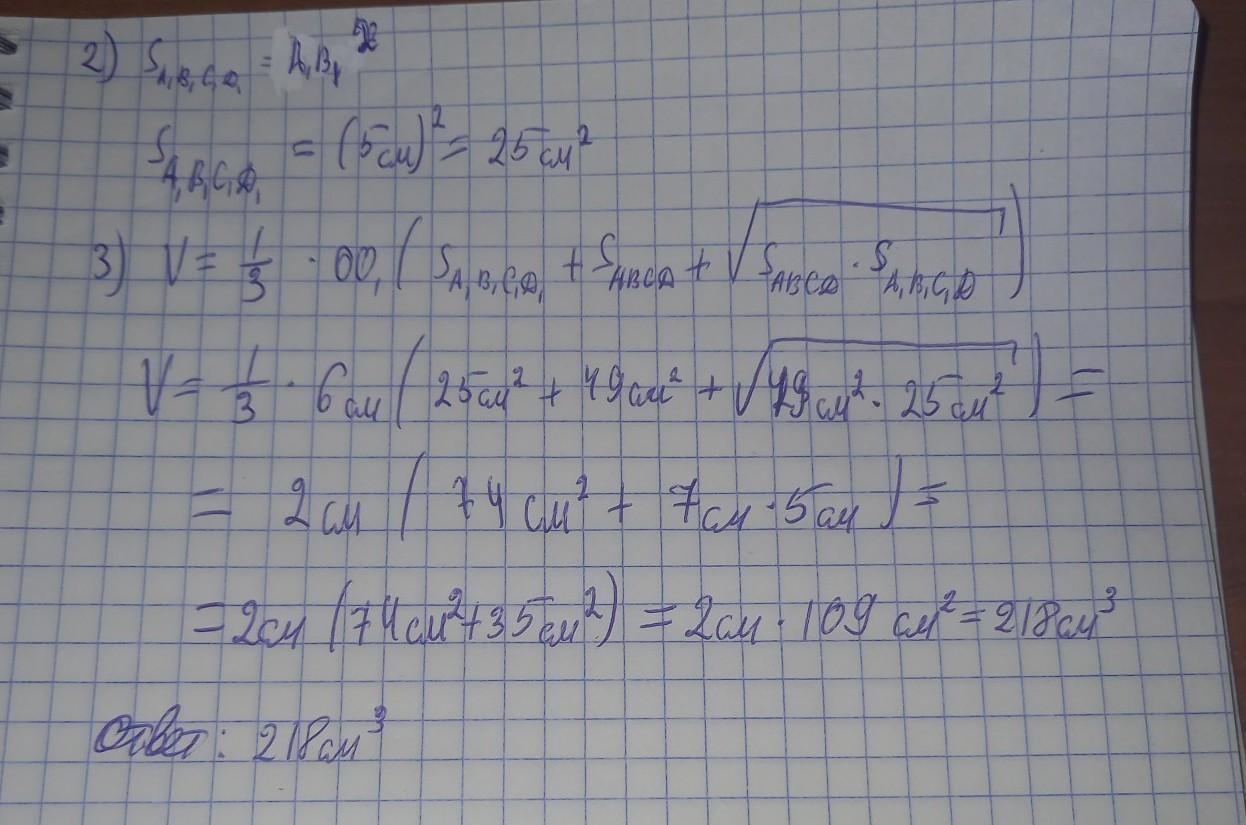 2) S_A₁B₁C₁D₁ = A₁B₁²
S_A₁B₁C₁D₁ = (5см)² = 25см²
3) V = 1/3 · OO₁ (S_A₁B₁C₁D₁ + S_ABCD + √(S_ABCD · S_A₁B₁C₁D))
V = 1/3 · 6см (25см² + 49см² + √(49см² · 25см²)) =
= 2см (74см² + 7см · 5см) =
= 2см (74см² + 35см²) = 2см · 109 см² = 218см³
Ответ: 218см³